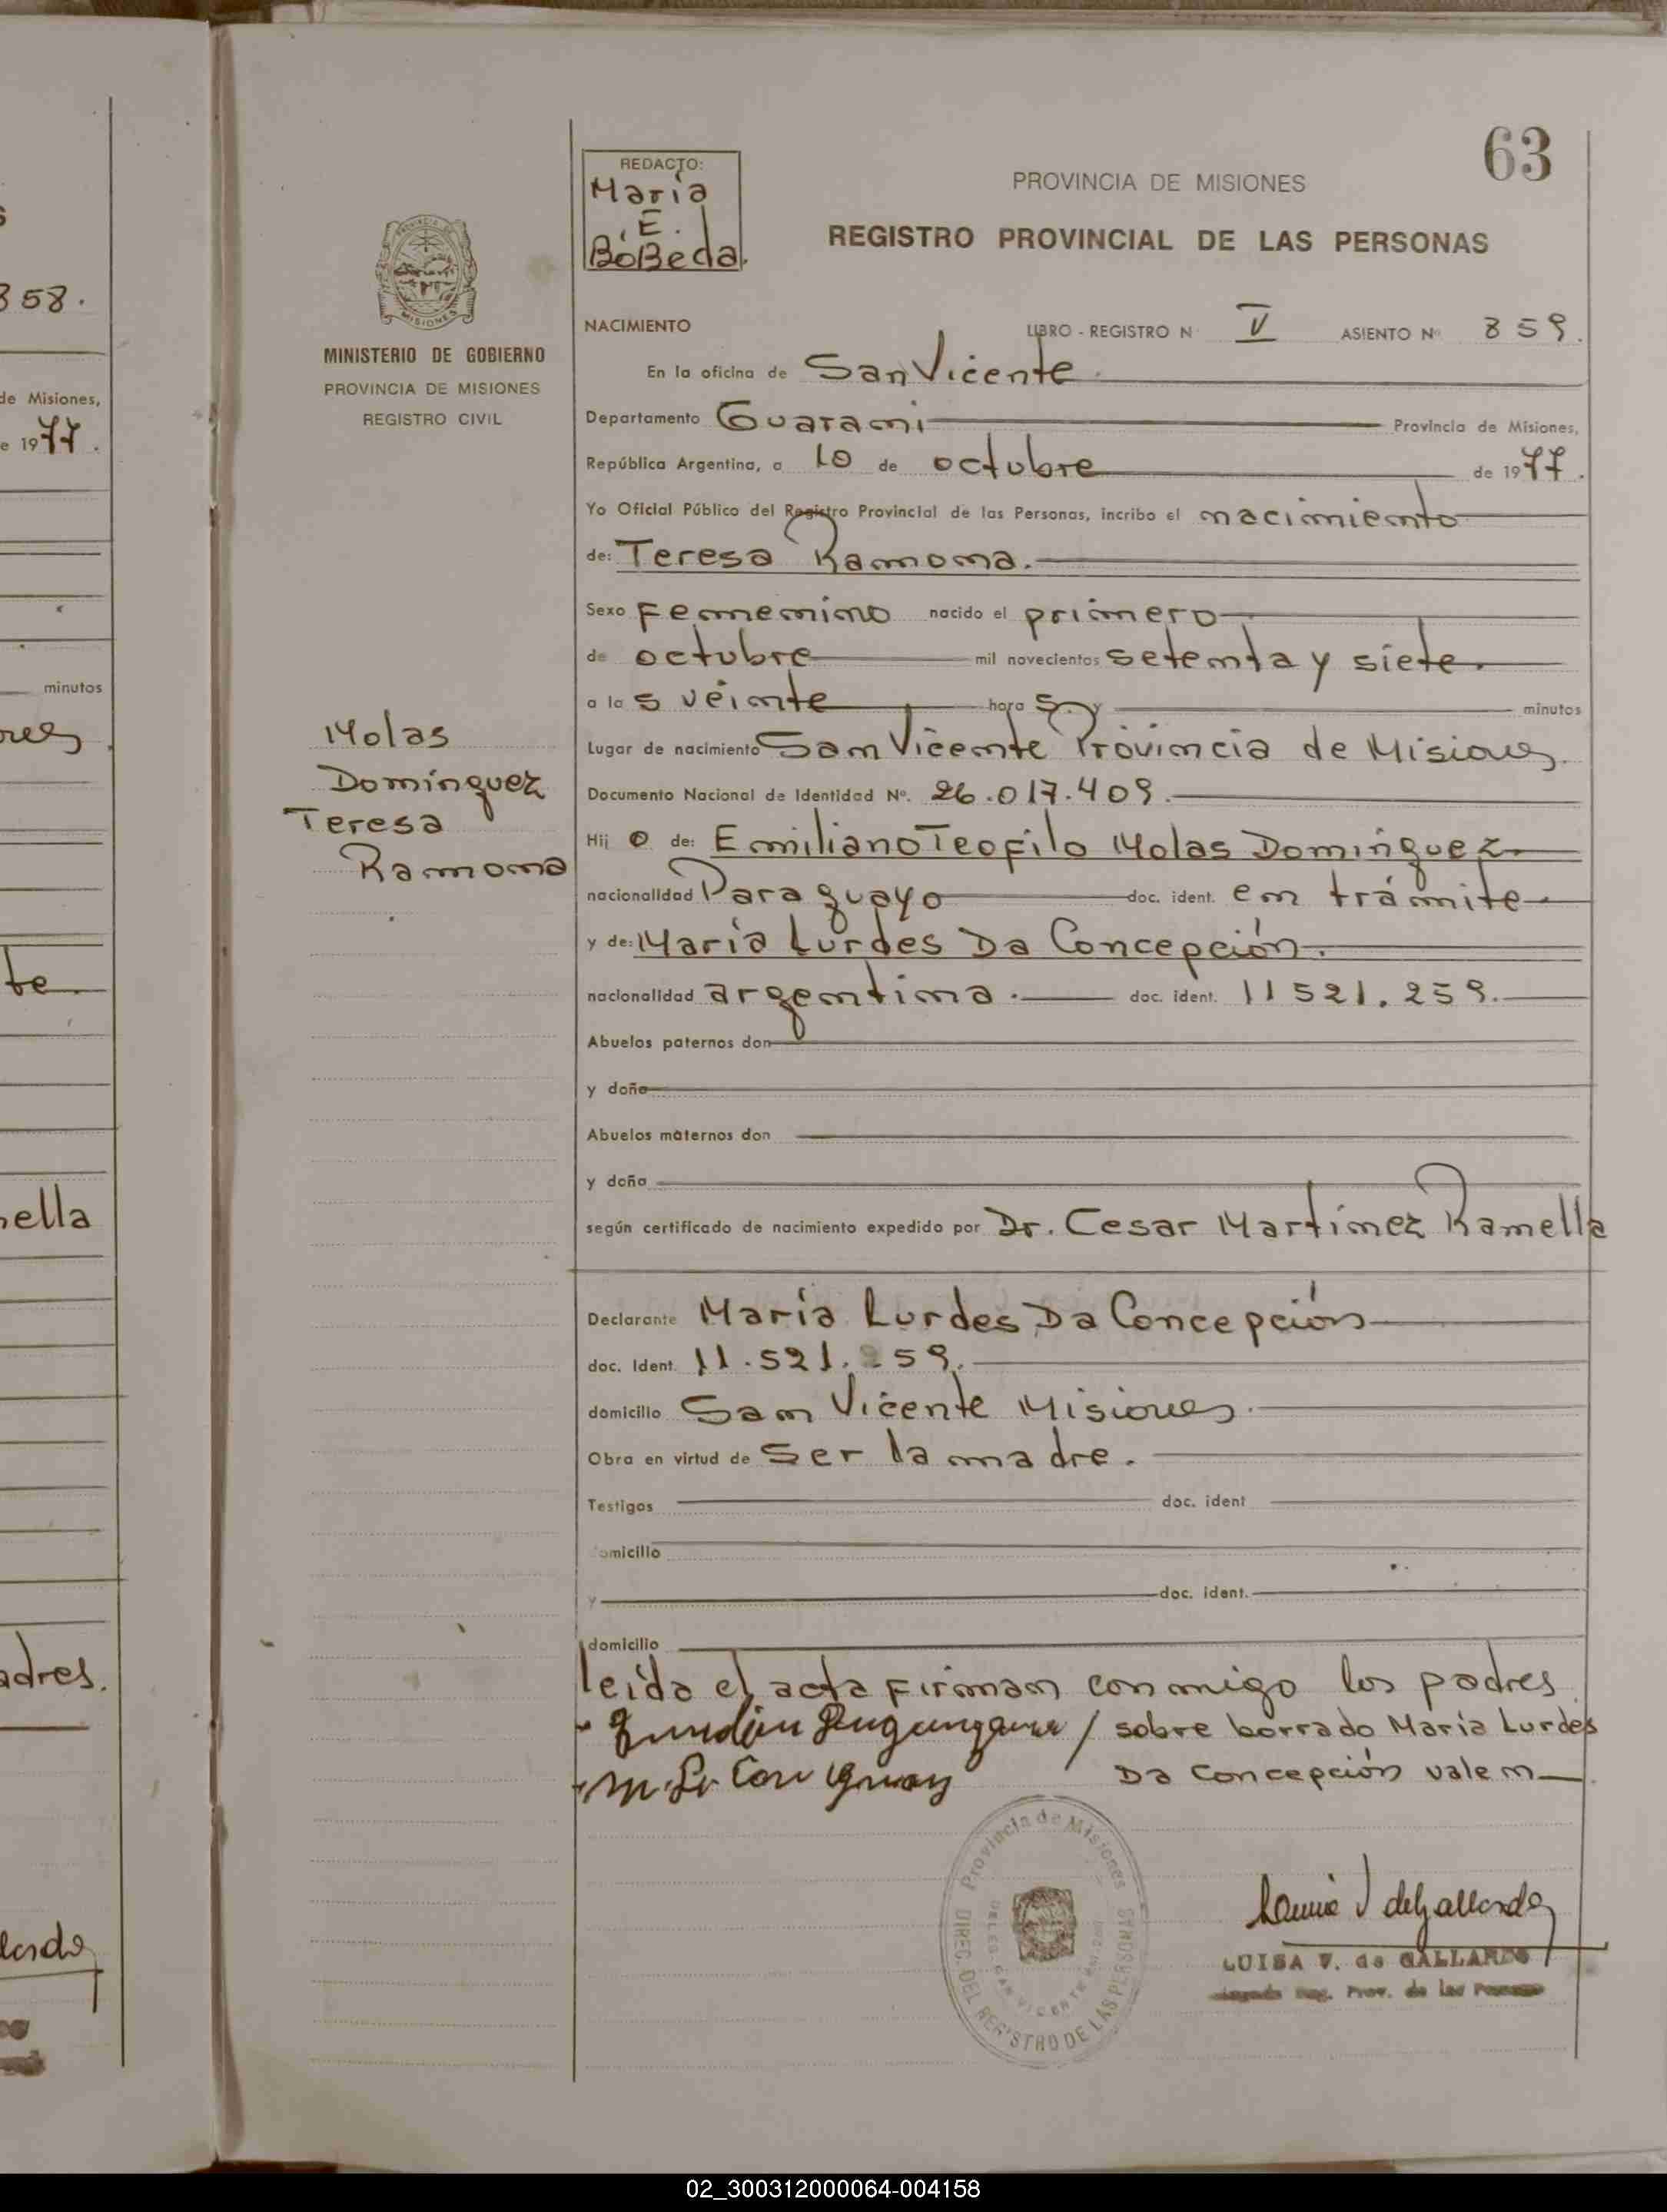 358.
de Misiones,
e 1977.
minutos
te
ella
adres.
63
REDACTO:
María
E.
BóBeda.
PROVINCIA DE MISIONES
REGISTRO PROVINCIAL DE LAS PERSONAS
PROVINCIA DE
MISIONES
MINISTERIO DE GOBIERNO
PROVINCIA DE MISIONES
REGISTRO CIVIL
NACIMIENTO LIBRO - REGISTRO N V ASIENTO Nº 859.
En la oficina de San Vicente.
Departamento Guarani Provincia de Misiones,
República Argentina, a 10 de octubre de 1977.
Yo Oficial Público del Registro Provincial de las Personas, incribo el nacimiento
de: Teresa Ramona.
Sexo Femenino nacido el primero
de octubre mil novecientos setenta y siete.
a las veinte horas. y minutos
Lugar de nacimiento San Vicente Provincia de Misiones.
Documento Nacional de Identidad Nº. 26.017.409.
Hij o de: Emiliano Teofilo Molas Dominguez
nacionalidad Paraguayo doc. ident. en trámite
y de: María Lurdes Da Concepción.
nacionalidad argentina. doc. ident. 11521.259.
Abuelos paternos don
y doña
Abuelos maternos don
y doña
según certificado de nacimiento expedido por Dr. Cesar Martinez Ramella
Molas
Dominguez
Teresa
Ramona
Declarante María Lurdes Da Concepción
doc. Ident. 11.521.259.
domicilio San Vicente Misiones.
Obra en virtud de Ser la madre.
Testigos doc. ident
domicilio
y doc. ident.
domicilio
leida el acta firman conmigo los padres
/ sobre borrado María Lurdes
Da Concepción valen
Provincia de Misiones
DIREC. DEL REGISTRO DE LAS PERSONAS
DELEG. SAN VICENTE
LUISA V. de GALLARDO
Reg. Prov. de las Personas
02_300312000064-004158